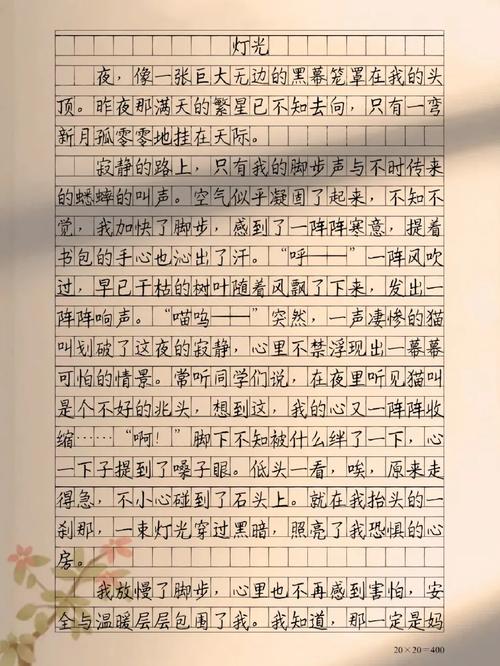 灯光
夜，像一张巨大无边的黑幕笼罩在我的头
顶。昨夜那满天的繁星已不知去向，只有一弯
新月孤零零地挂在天际。
寂静的路上，只有我的脚步声与不时传来
的蟋蟀的叫声。空气似乎凝固了起来，不知不
觉，我加快了脚步，感到了一阵阵寒意，提着
书包的手心也沁出了汗。“呼——”一阵风吹
过，早已干枯的树叶随着风飘了下来，发出一
阵阵响声。“喵呜——”突然，一声凄惨的猫
叫划破了这夜的寂静，心里不禁浮现出一幕幕
可怕的情景。常听同学们说，在夜里听见猫叫
是个不好的兆头，想到这，我的心又一阵阵收
缩……“啊！”脚下不知被什么绊了一下，心
一下子提到了嗓子眼。低头一看，唉，原来走
得急，不小心碰到了石头上。就在我抬头的一
刹那，一束灯光穿过黑暗，照亮了我恐惧的心
房。
我放慢了脚步，心里也不再感到害怕，安
全与温暖层层包围了我。我知道，那一定是妈
20×20=400